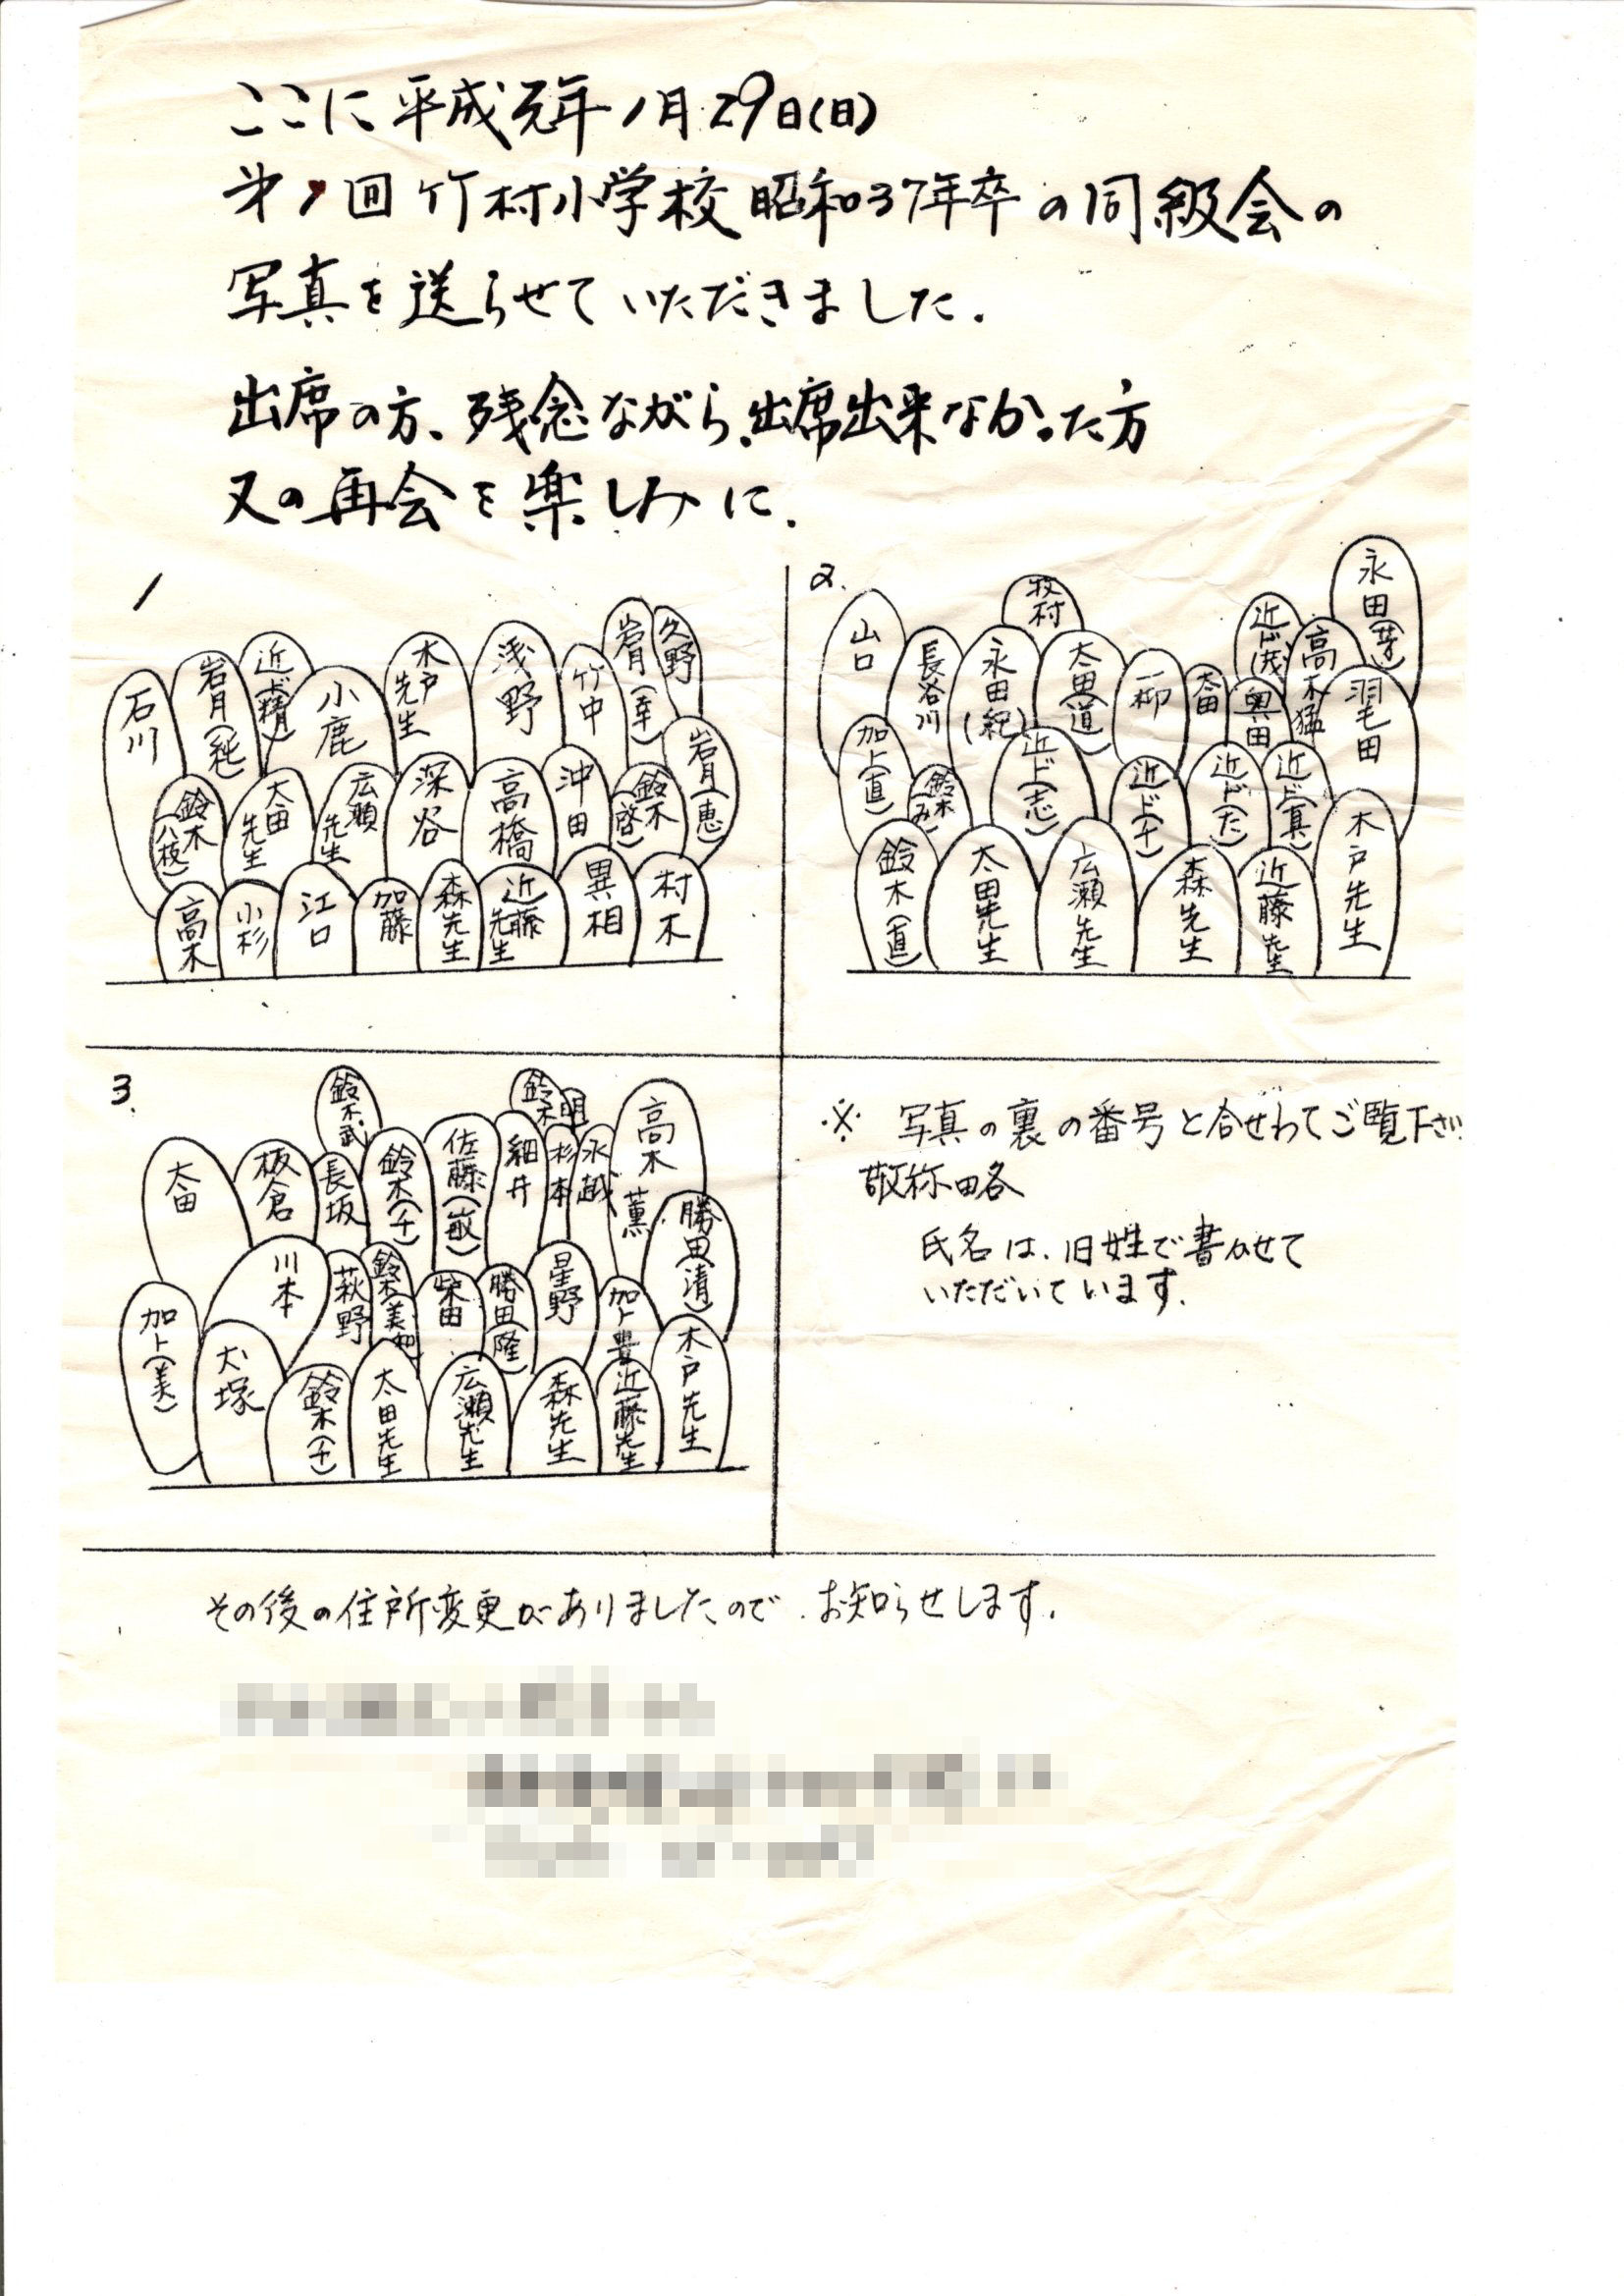 ここに平成元年1月29日(日)
第1回竹村小学校昭和37年卒の同級会の
写真を送らせていただきました.
出席の方、残念ながら出席出来なかった方
又の再会を楽しみに.
1
石川
岩月(純)
近ド(精)
小鹿
木戸先生
浅野
竹中
岩月(幸)
久野
鈴木(八枝)
太田先生
広瀬先生
深谷
高橋
沖田
鈴木(啓)
岩月(恵)
高木
小杉
江口
加藤
森先生
近藤先生
異相
村木
2.
山口
長谷川
永田(紀)
牧村
太田(道)
一柳
太田
近ド(茂)
奥田
高木猛
永田(芳)
羽毛田
加ト(直)
鈴木(み)
近ド(志)
近ド(千)
近ド(た)
近ド(真)
鈴木(直)
太田先生
広瀬先生
森先生
近藤先生
木戸先生
3.
太田
板倉
鈴木武
長坂
鈴木(千)
佐藤(敏)
細井
鈴木明
杉本
永越
高木薫
勝田(清)
川本
萩野
鈴木美和
柴田
勝田(隆)
星野
加ト豊
加ト(美)
犬塚
鈴木(千)
太田先生
広瀬先生
森先生
近藤先生
木戸先生
※ 写真の裏の番号と合せわてご覧下さい
敬称略
氏名は、旧姓で書かせて
いただいています.
その後の住所変更がありましたので、お知らせします.